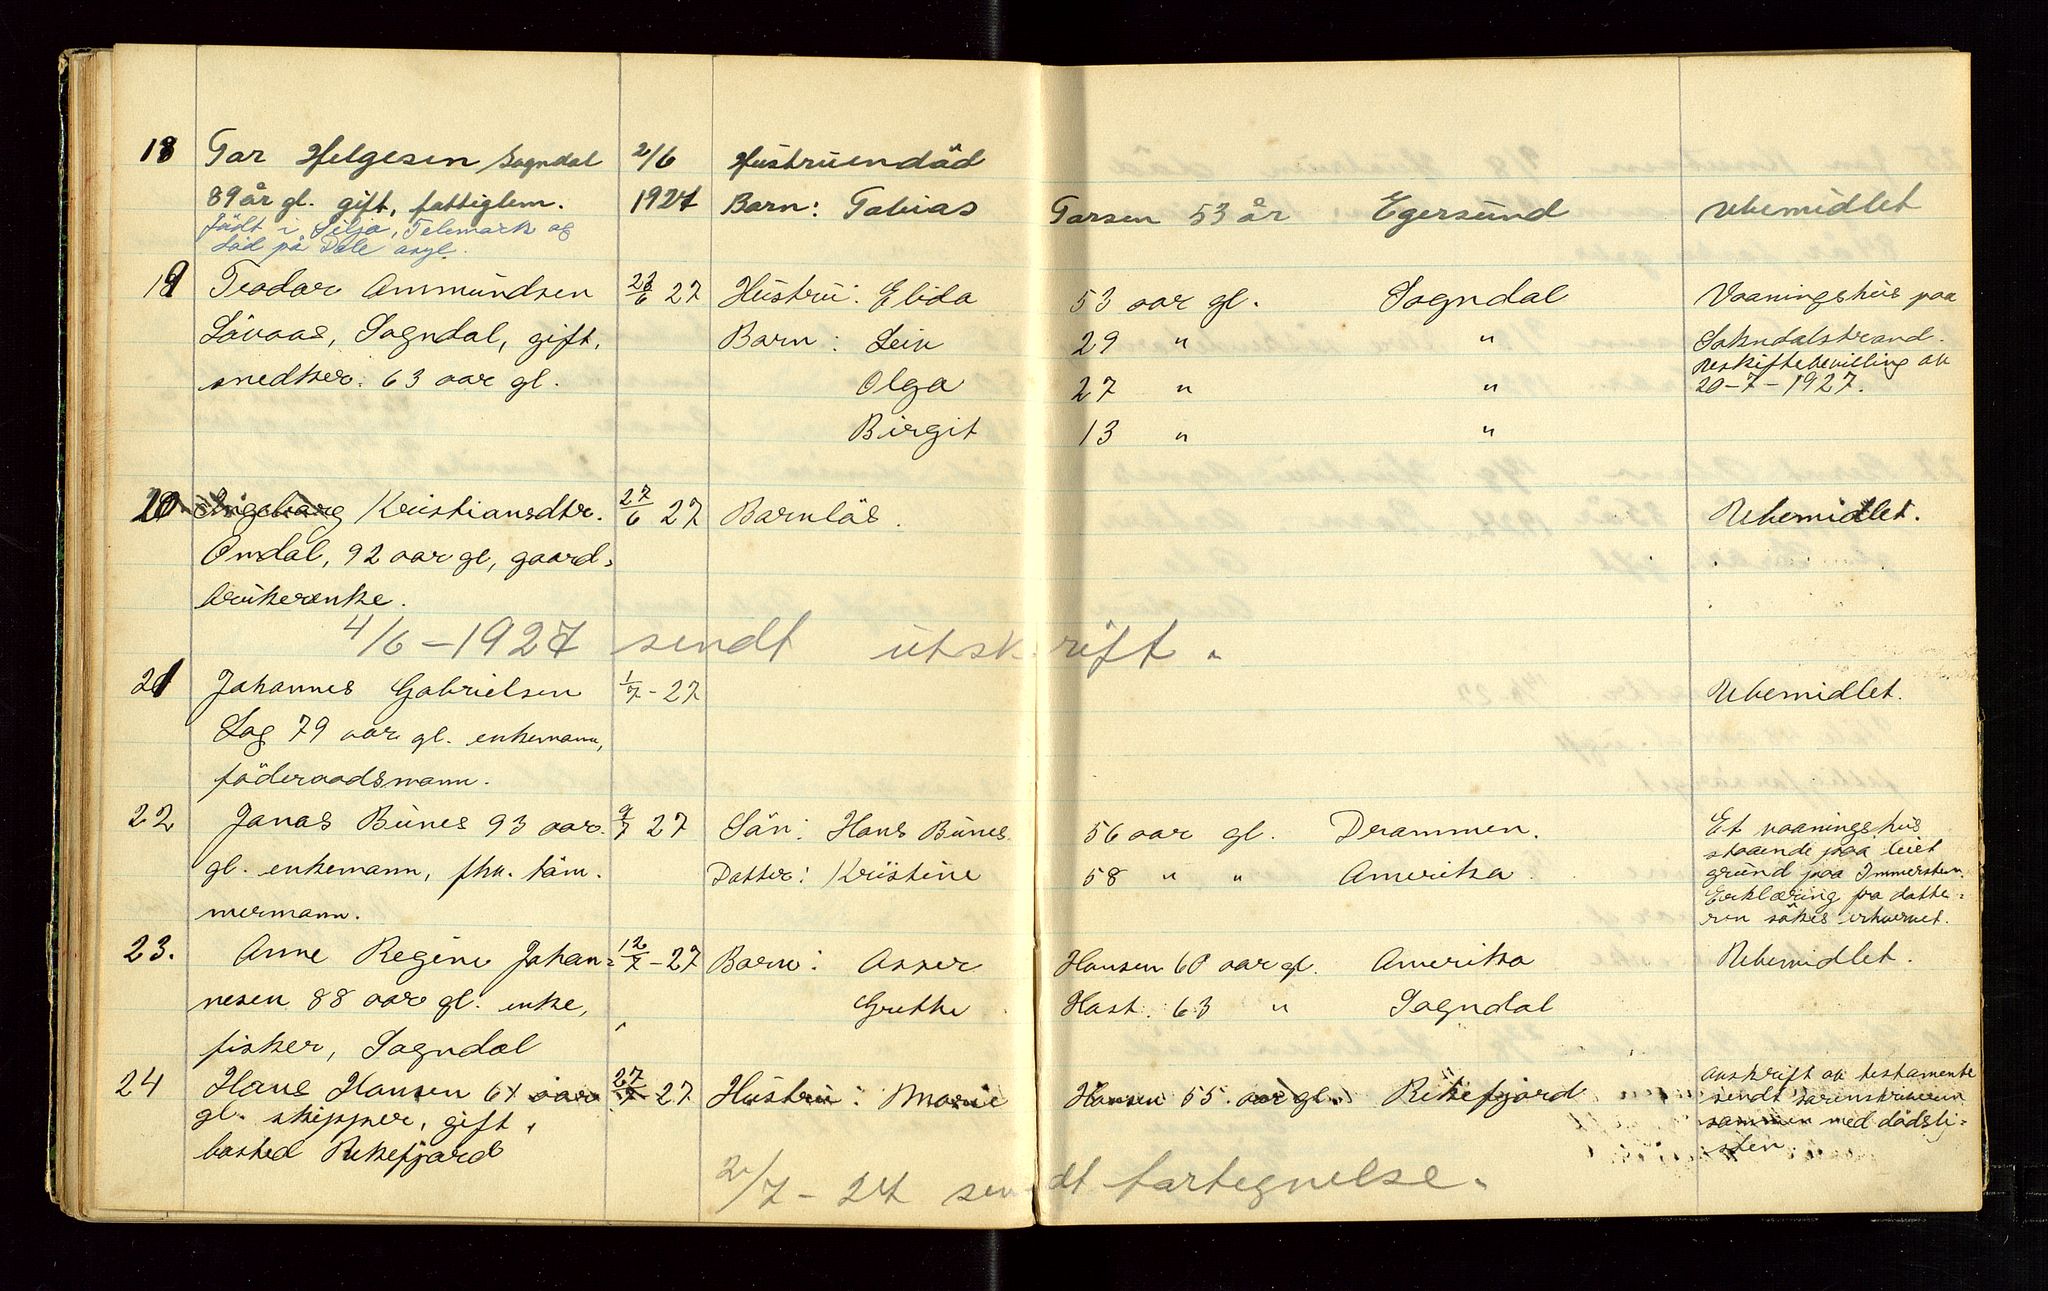 18 Tor Helgesen Sogndal 2/6 Hustruen död
89 år gl. gift, fattiglem. 1927 Barn: Tobias Torsen 53 år Egersund Ubemidlet
Födt i Siljo, Telemark og
död på Dale asyl.
19 Teodor Ammundsen 23/6 27 Hustru: Elida 53 aar gl. Sogndal Vaaningshus paa
Lövaas, Sogndal, gift, Barn: Leiv 29 " " Sokndalstrand.
snedker. 63 aar gl. Olga 27 " " Uskiftebevilling av
20-7-1927.
Birgit 13 " "
20 Ingeborg Kristiansdtr. 27/6 27 Barnlös. Ubemidlet.
Omdal, 92 aar gl, gaard-
brukerenke.
4/6 - 1927 sendt utskrift.
21 Johannes Gabrielsen 1/7 - 27 Ubemidlet.
Log 79 aar gl. enkemann,
föderaadsmann.
22 Jonas Bunes 93 aar 9/7 27 Sön: Hans Bunes 56 aar gl. Drammen. Et vaaningshus
gl. enkemann, fhv. töm- Datter: Kristine 58 " " Amerika. staaende paa leiet
mermann. grund paa Immerstein.
Erklæring fra datte-
ren sökes erhvervet.
23. Anne Regine Johan- 12/7 - 27 Barn: Asser Hansen 60 aar gl. Amerika Ubemidlet.
nesen 88 aar gl. enke, Grethe Hast. 63 " Sogndal
fisker, Sogndal
24 Hans Hansen 64 aar 27/7 27 Hustru: Marie Hansen 55 aar gl. Rekefjord Avskrift av testamente
gl. skipper, gift, sendt sorenskriveren
bosted Rekefjord sammen med dödsli-
sten.
2/7 - 27 sendt fortegnelse.